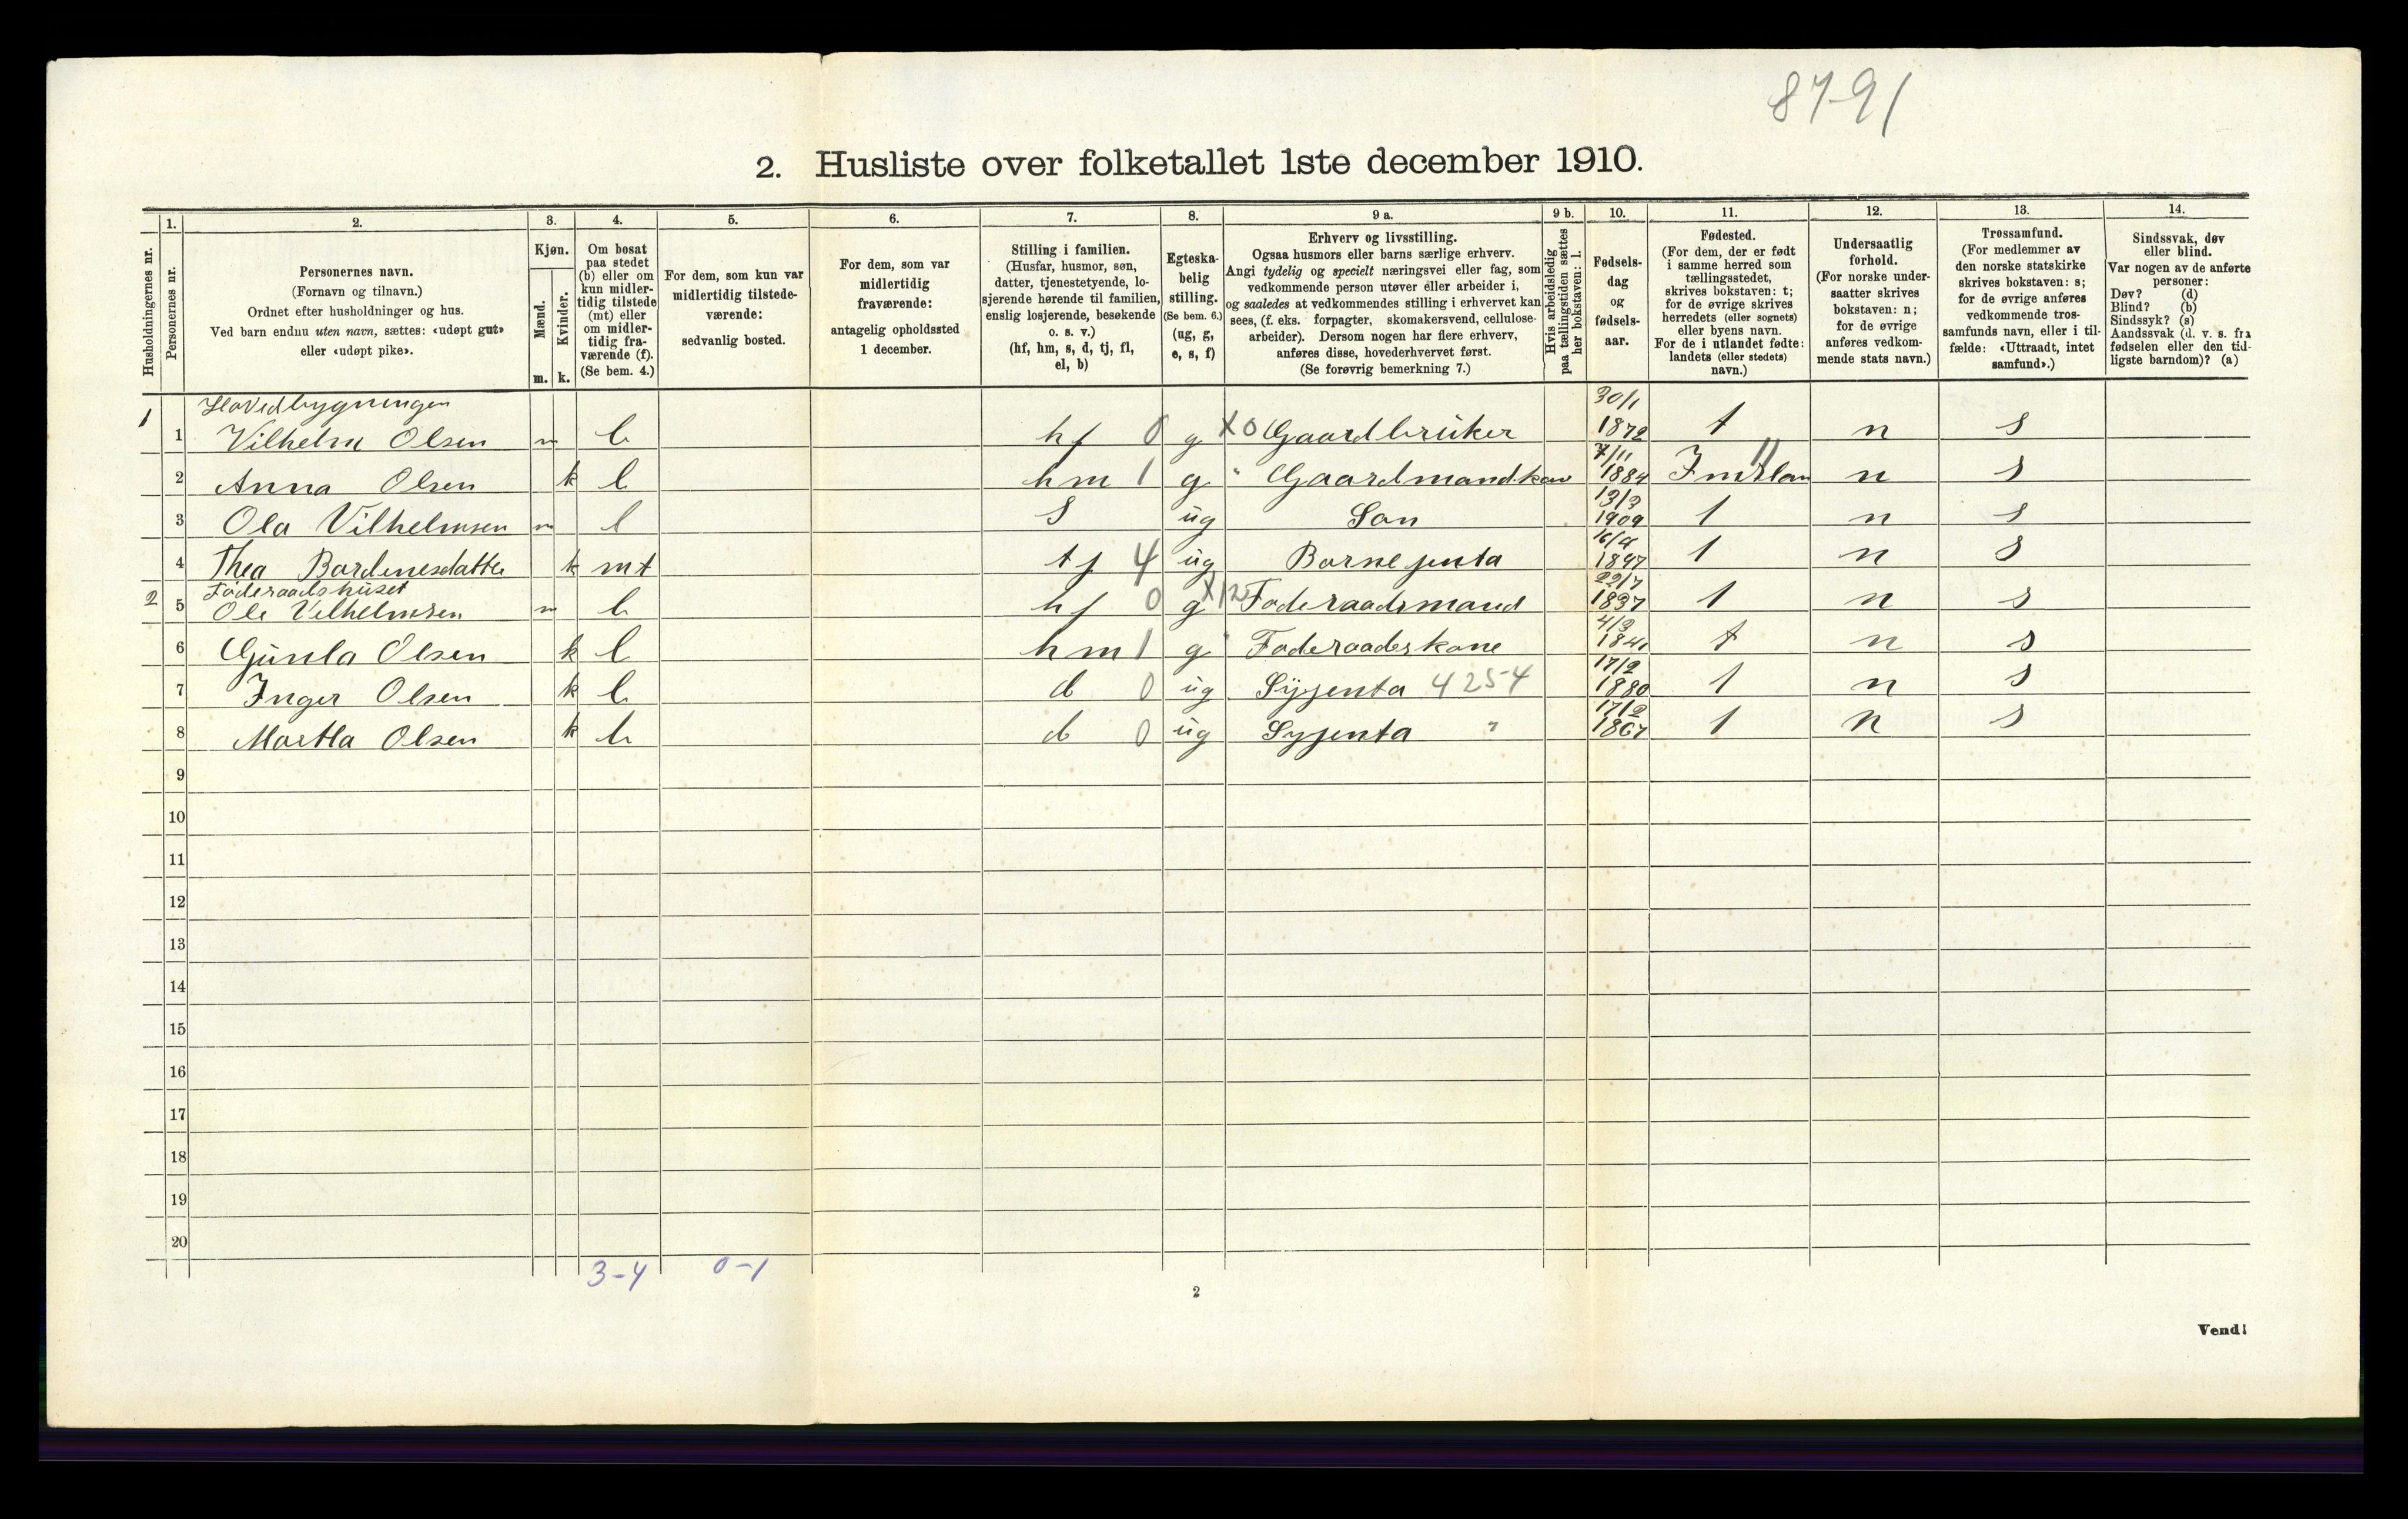 87-91
2. Husliste over folketallet 1ste december 1910.
1. 2. 3. 4. 5. 6. 7. 8. 9 a. 9 b. 10. 11. 12. 13. 14.
Husholdningernes nr.
Personernes nr.
Personernes navn.
(Fornavn og tilnavn.)
Ordnet efter husholdninger og hus.
Ved barn endnu uten navn, sættes: «udøpt gut»
eller «udøpt pike».
Kjøn.
Mænd.
Kvinder.
m. k.
Om bosat
paa stedet
(b) eller om
kun midler-
tidig tilstede
(mt) eller
om midler-
tidig fra-
værende (f).
(Se bem. 4.)
For dem, som kun var
midlertidig tilstede-
værende:
sedvanlig bosted.
For dem, som var
midlertidig
fraværende:
antagelig opholdssted
1 december.
Stilling i familien.
(Husfar, husmor, søn,
datter, tjenestetyende, lo-
sjerende hørende til familien,
enslig losjerende, besøkende
o. s. v.)
(hf, hm, s, d, tj, fl,
el, b)
Egteska-
belig
stilling.
(Se bem. 6.)
(ug, g,
e, s, f)
Erhverv og livsstilling.
Ogsaa husmors eller barns særlige erhverv.
Angi tydelig og specielt næringsvei eller fag, som
vedkommende person utøver eller arbeider i,
og saaledes at vedkommendes stilling i erhvervet kan
sees, (f. eks. forpagter, skomakersvend, cellulose-
arbeider). Dersom nogen har flere erhverv,
anføres disse, hovederhvervet først.
(Se forøvrig bemerkning 7.)
Hvis arbeidsledig
paa tællingstiden sættes
her bokstaven: l.
Fødsels-
dag
og
fødsels-
aar.
Fødested.
(For dem, der er født
i samme herred som
tællingsstedet,
skrives bokstaven: t;
for de øvrige skrives
herredets (eller sognets)
eller byens navn.
For de i utlandet fødte:
landets (eller stedets)
navn.)
Undersaatlig
forhold.
(For norske under-
saatter skrives
bokstaven: n;
for de øvrige
anføres vedkom-
mende stats navn.)
Trossamfund.
(For medlemmer av
den norske statskirke
skrives bokstaven: s;
for de øvrige anføres
vedkommende tros-
samfunds navn, eller i til-
fælde: «Uttraadt, intet
samfund».)
Sindssvak, døv
eller blind.
Var nogen av de anførte
personer:
Døv? (d)
Blind? (b)
Sindssyk? (s)
Aandssvak (d. v. s. fra
fødselen eller den tid-
ligste barndom)? (a)
Hovedbygningen 30/1
1 1 Vilhelm Olsen m b hf 0 g X0 Gaardbruker 1872 t n s
7/11
2 Anna Olsen k b hm 1 g " 1884 n s
13/3
3 Ola Vilhelmsen m b s ug Søn 1909 t n s
4 Thea k mt tj 4 ug Barnejenta 1897 t n s
Føderaadshuset 22/7
2 5 Ole Vilhelmsen m b hf 0 g X12 Føderaadsmand 1837 t n s
4/3
6 Gunla Olsen k b hm 1 g " Føderaadskone 1841 t n s
17/2
7 Inger Olsen k b d 0 ug Syjenta 4254 1880 t n s
17/2
8 Martha Olsen k b d 0 ug Syjenta " 1867 t n s
9
10
11
12
13
14
15
16
17
18
19
20
3-4 0-1
2
Vend!